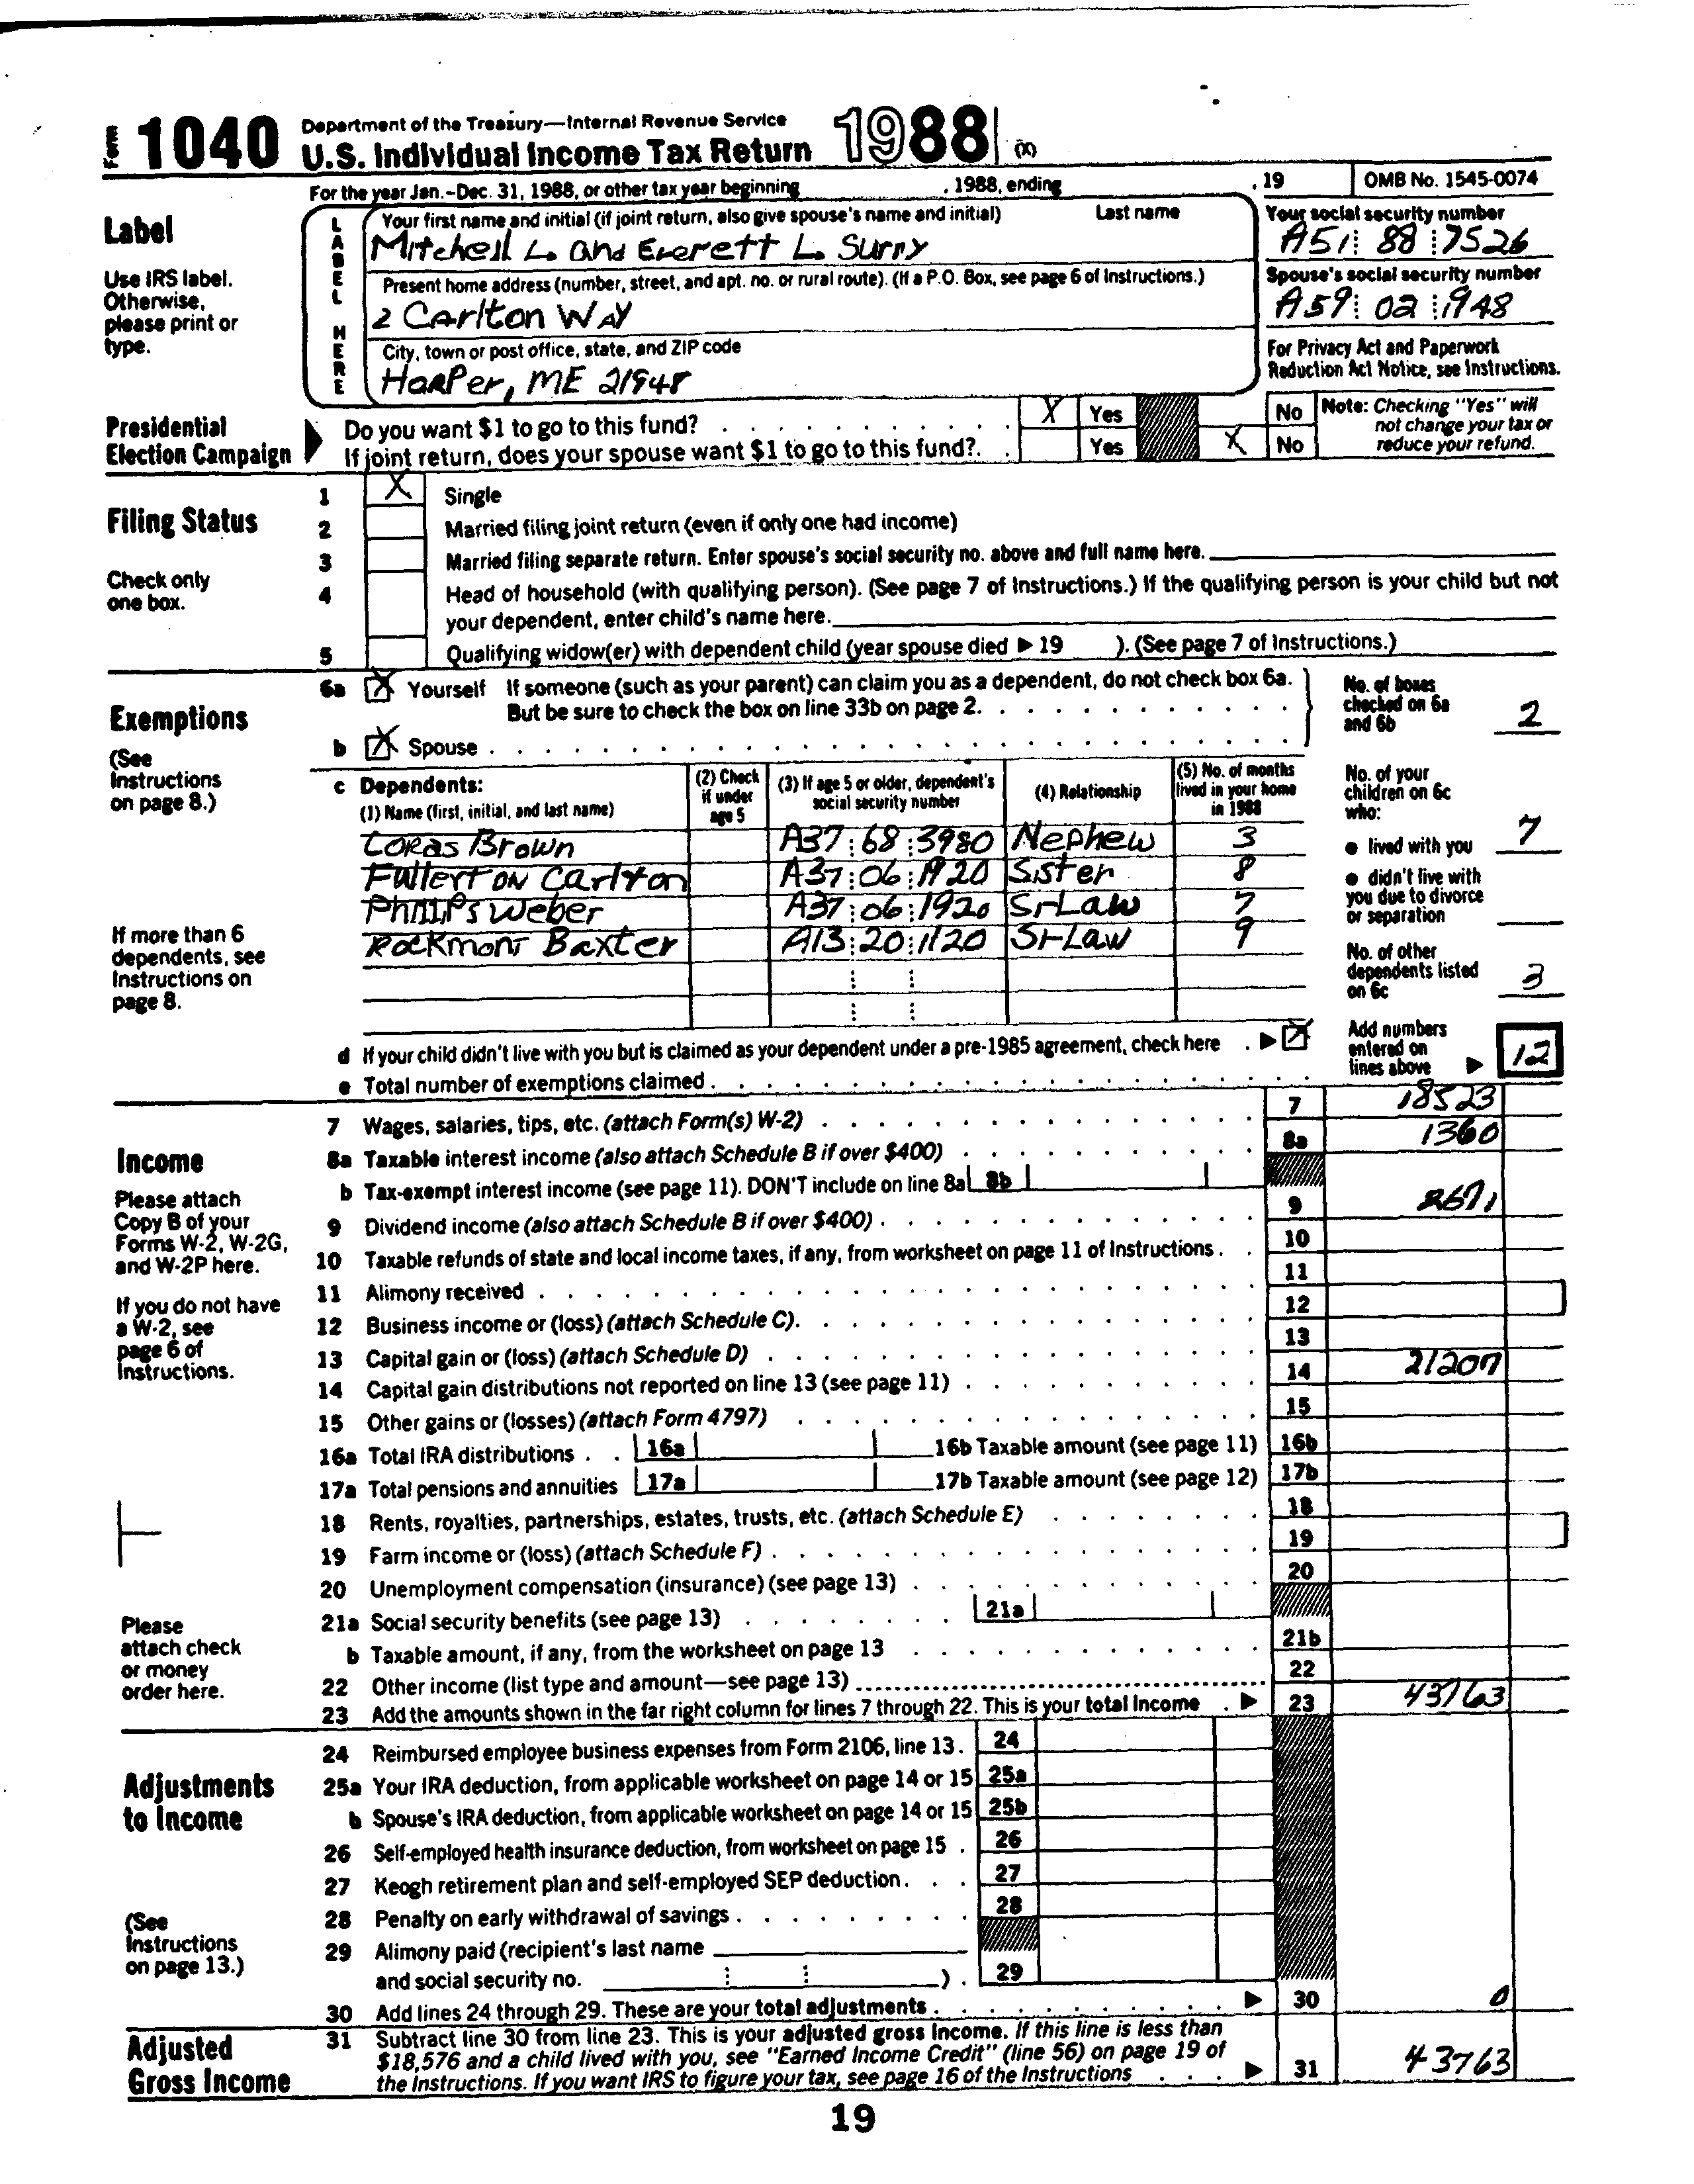 Form 1040 Department of the Treasury—Internal Revenue Service
U.S. Individual Income Tax Return 1988 (X)
For the year Jan.-Dec. 31, 1988, or other tax year beginning , 1988, ending , 19 OMB No. 1545-0074
Label
Use IRS label.
Otherwise,
please print or
type.
LABEL HERE
Your first name and initial (if joint return, also give spouse's name and initial) Last name
Mitchell L. and Everett L. Surry
Your social security number
A51 88 7526
Present home address (number, street, and apt. no. or rural route). (If a P.O. Box, see page 6 of Instructions.)
2 Carlton Way
Spouse's social security number
A59 02 1948
City, town or post office, state, and ZIP code
Harper, ME 21948
For Privacy Act and Paperwork
Reduction Act Notice, see Instructions.
Presidential
Election Campaign
Do you want $1 to go to this fund? X Yes No
If joint return, does your spouse want $1 to go to this fund?. Yes X No
Note: Checking "Yes" will
not change your tax or
reduce your refund.
Filing Status
Check only
one box.
1 X Single
2 Married filing joint return (even if only one had income)
3 Married filing separate return. Enter spouse's social security no. above and full name here.
4 Head of household (with qualifying person). (See page 7 of Instructions.) If the qualifying person is your child but not
your dependent, enter child's name here.
5 Qualifying widow(er) with dependent child (year spouse died ▶ 19 ). (See page 7 of Instructions.)
Exemptions
(See
Instructions
on page 8.)
If more than 6
dependents, see
Instructions on
page 8.
6a X Yourself If someone (such as your parent) can claim you as a dependent, do not check box 6a.
But be sure to check the box on line 33b on page 2.
b X Spouse
No. of boxes
checked on 6a
and 6b 2
c Dependents:
(1) Name (first, initial, and last name)
(2) Check
if under
age 5
(3) If age 5 or older, dependent's
social security number
(4) Relationship
(5) No. of months
lived in your home
in 1988
Coras Brown A37 68 3980 Nephew 3
Fullerton Carlton A37 06 1920 Sister 8
Phillips Weber A37 06 1920 Sr-Law 7
Rockmont Baxter A13 20 1120 Sr-Law 9
No. of your
children on 6c
who:
● lived with you 7
● didn't live with
you due to divorce
or separation
No. of other
dependents listed
on 6c 3
d If your child didn't live with you but is claimed as your dependent under a pre-1985 agreement, check here ▶ X
e Total number of exemptions claimed
Add numbers
entered on
lines above ▶ 12
Income
Please attach
Copy B of your
Forms W-2, W-2G,
and W-2P here.
If you do not have
a W-2, see
page 6 of
Instructions.
Please
attach check
or money
order here.
7 Wages, salaries, tips, etc. (attach Form(s) W-2) 7 18523
8a Taxable interest income (also attach Schedule B if over $400) 8a 1360
b Tax-exempt interest income (see page 11). DON'T include on line 8a 8b
9 Dividend income (also attach Schedule B if over $400) 9 2671
10 Taxable refunds of state and local income taxes, if any, from worksheet on page 11 of Instructions. 10
11 Alimony received 11
12 Business income or (loss) (attach Schedule C). 12
13 Capital gain or (loss) (attach Schedule D) 13
14 Capital gain distributions not reported on line 13 (see page 11) 14 21207
15 Other gains or (losses) (attach Form 4797) 15
16a Total IRA distributions 16a 16b Taxable amount (see page 11) 16b
17a Total pensions and annuities 17a 17b Taxable amount (see page 12) 17b
18 Rents, royalties, partnerships, estates, trusts, etc. (attach Schedule E) 18
19 Farm income or (loss) (attach Schedule F) 19
20 Unemployment compensation (insurance) (see page 13) 20
21a Social security benefits (see page 13) 21a
b Taxable amount, if any, from the worksheet on page 13 21b
22 Other income (list type and amount—see page 13) 22
23 Add the amounts shown in the far right column for lines 7 through 22. This is your total income ▶ 23 43763
Adjustments
to Income
(See
Instructions
on page 13.)
24 Reimbursed employee business expenses from Form 2106, line 13. 24
25a Your IRA deduction, from applicable worksheet on page 14 or 15 25a
b Spouse's IRA deduction, from applicable worksheet on page 14 or 15 25b
26 Self-employed health insurance deduction, from worksheet on page 15 26
27 Keogh retirement plan and self-employed SEP deduction 27
28 Penalty on early withdrawal of savings 28
29 Alimony paid (recipient's last name
and social security no. ) 29
30 Add lines 24 through 29. These are your total adjustments ▶ 30 0
Adjusted
Gross Income
31 Subtract line 30 from line 23. This is your adjusted gross income. If this line is less than
$18,576 and a child lived with you, see "Earned Income Credit" (line 56) on page 19 of
the Instructions. If you want IRS to figure your tax, see page 16 of the Instructions ▶ 31 43763
19